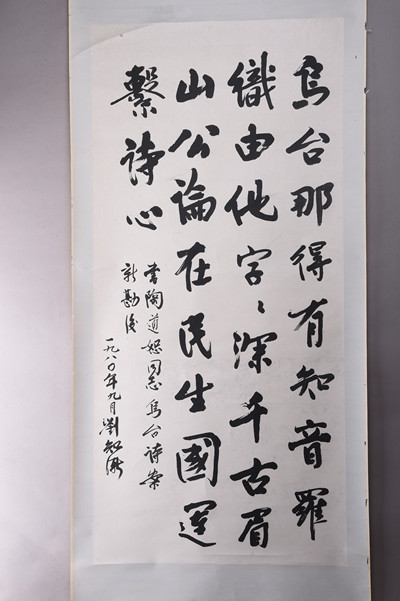 烏台那得有知音羅
織由他字〻深千古眉
山公論在民生國運
繫詩心
書陶道恕同志烏台詩案
新勘後
一九八〇年九月劉知漸